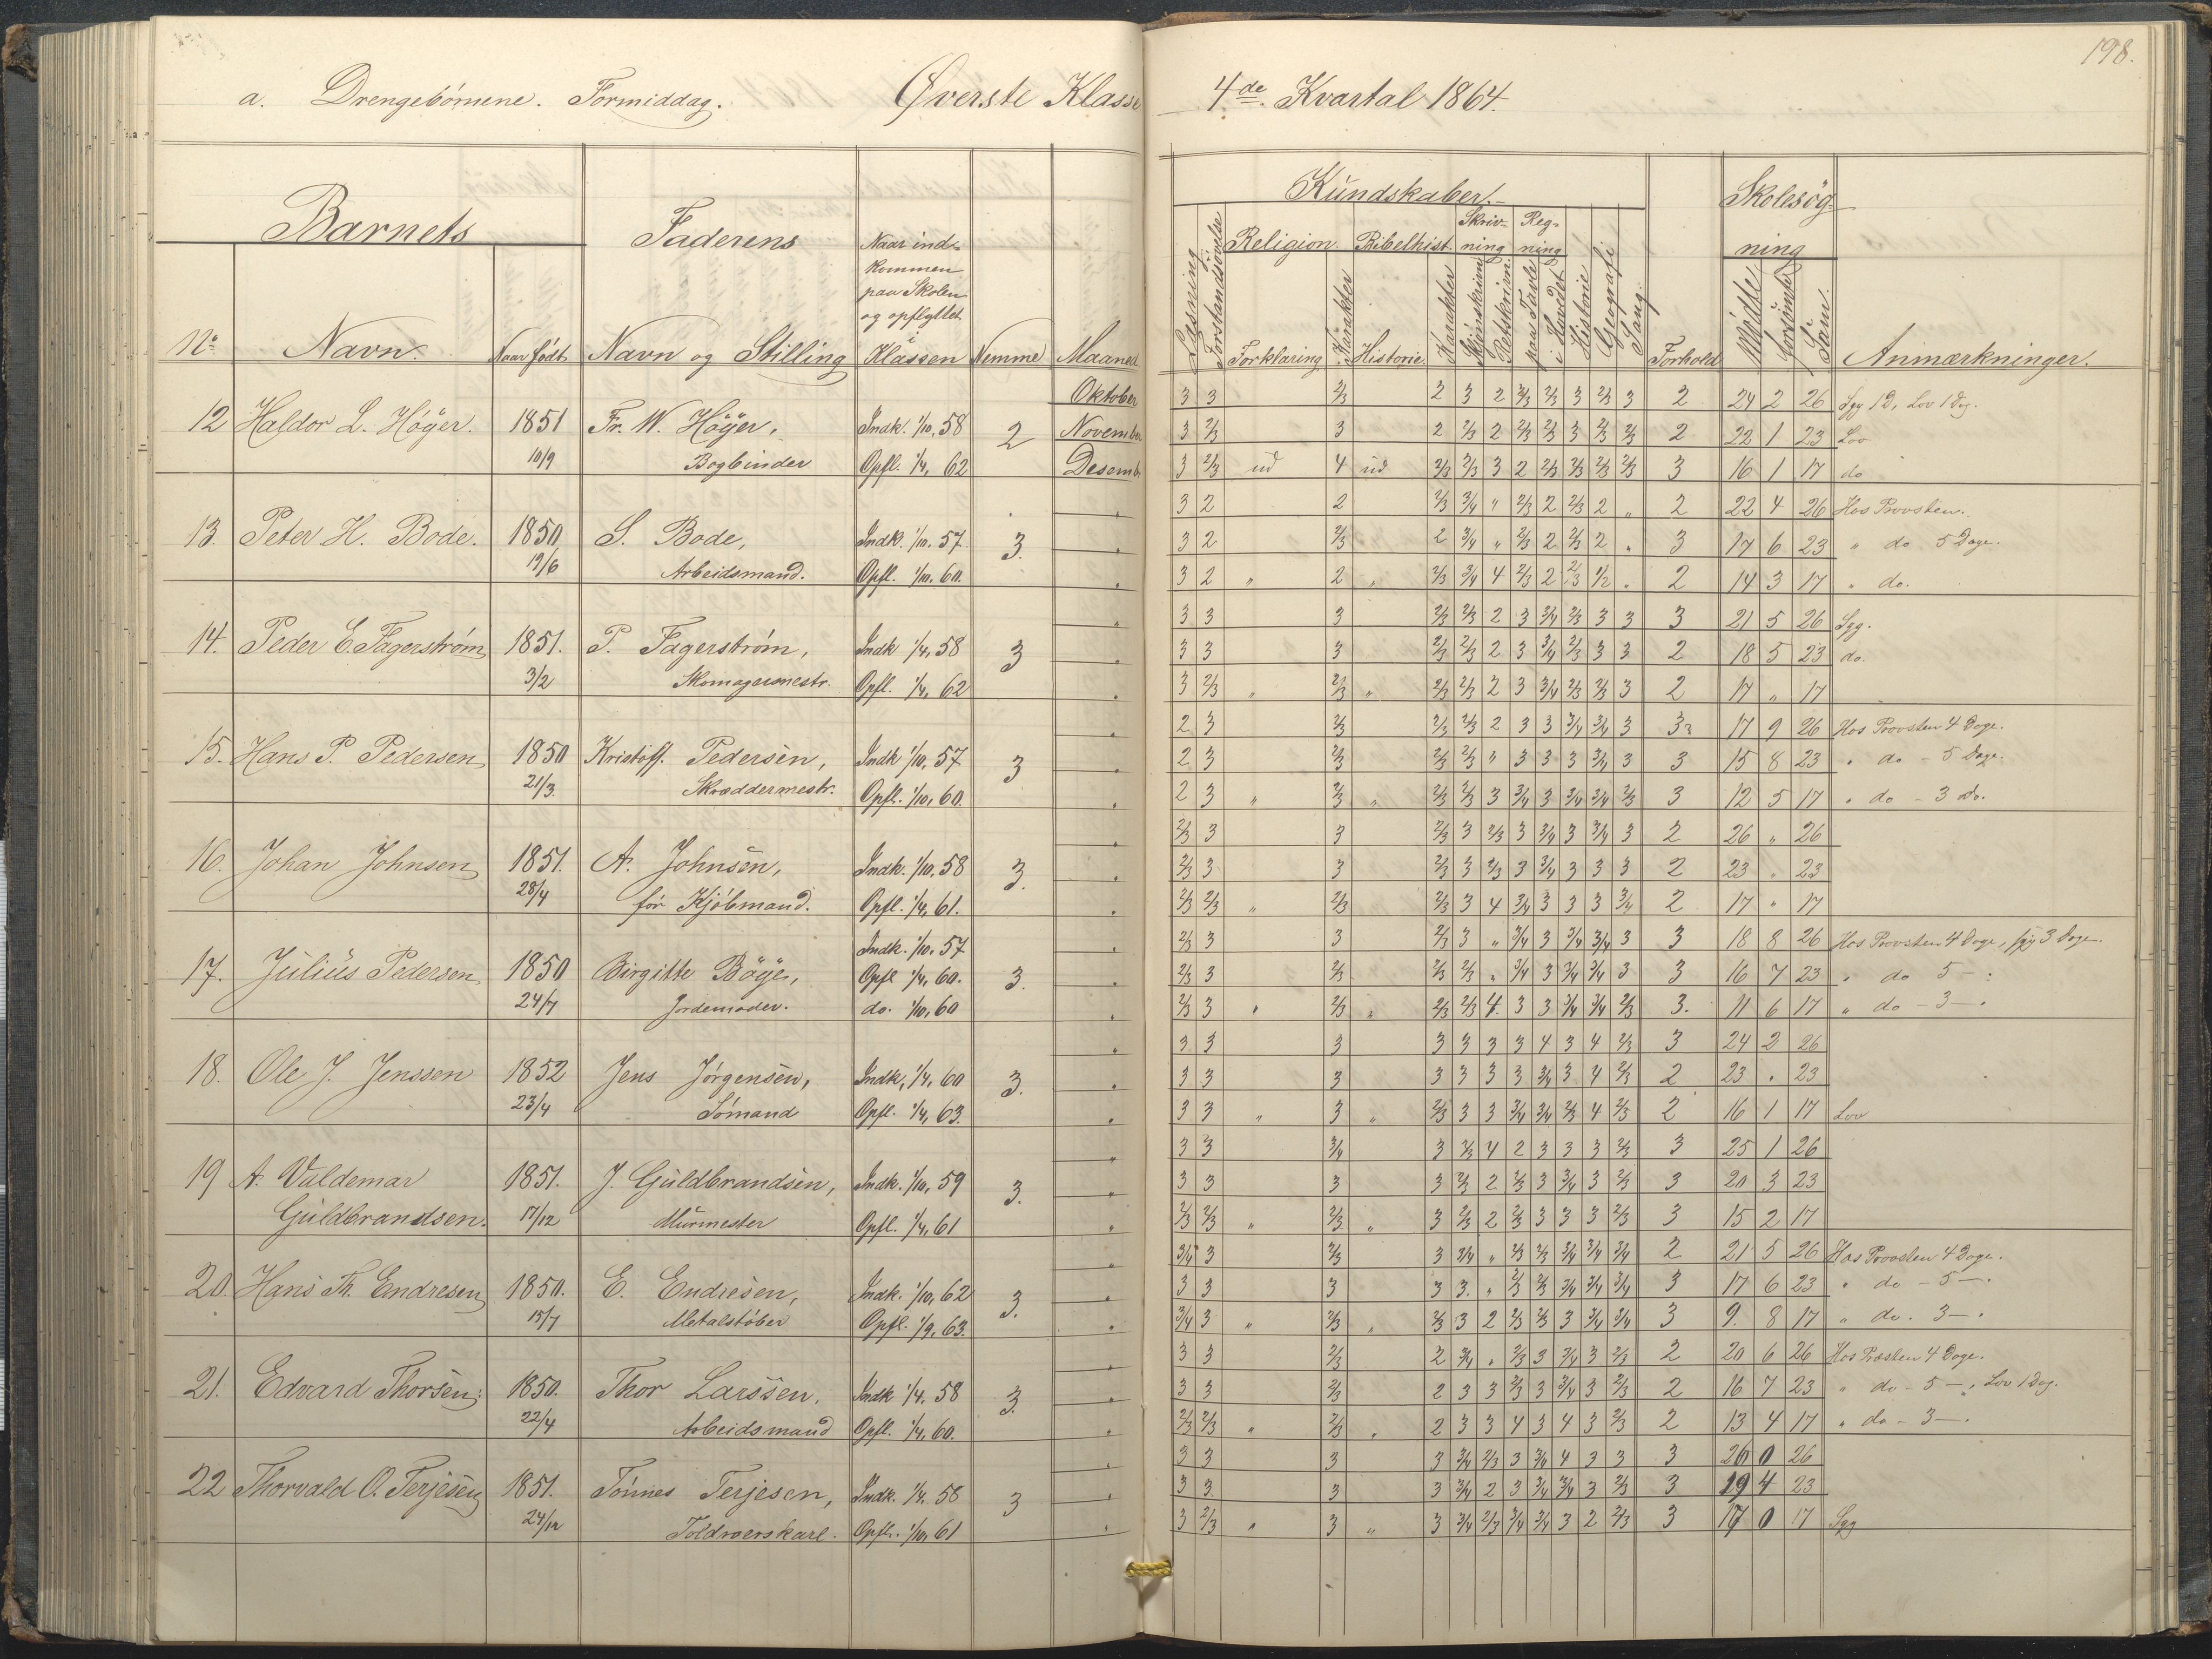 198.
a. Drengebörnene. Formiddag. Øverste Klasse 4de Kvartal 1864.
Barnets Faderens Naar ind-kommen paa Skolen og opflyttet Kundskaber. Skolesög-ning
Læsning Forstandsövelse Religion. Bibelhist. Skriv-ning Reg-ning
No Navn. Naar födt Navn og Stilling i Klassen Nemme Maaned Forklaring Karakter Historie Karakter Skjönskrivn. Retskrivn. paa Tavle i Hovedet Historie Geografi Sang. Forhold Mödte Forsömte Sum. Anmærkninger.
Oktober 3 3 2/3 2 3 2 3/4 2/3 3 2/3 3 2 24 2 26 Syg 1 D, Lov 1 Dag.
12 Haldor L. Höyer. 1851 Fr. W. Höyer, Indk. 1/10, 58 2 November 3 2/3 3 2 2/3 2 2/3 2/3 3 2/3 2/3 2 22 1 23 Lov
10/9 Bogbinder Opfl. 1/4, 62 Desemb 3 2/3 ud 4 ud 2/3 2/3 3 2 2/3 2/3 2/3 2/3 3 16 1 17 do
3 2 2 2/3 3/4 " 2/3 2 2/3 2 " 2 22 4 26 Hos Provsten.
13. Peter H. Bode. 1850 S. Bode, Indk. 1/10. 57 3. " 3 2 2/3 2 3/4 " 2/3 2 2/3 2 " 3 17 6 23 " do 5 Dage.
19/6 Arbeidsmand. Opfl. 1/10. 60. " 3 2 " 2 " 2/3 3/4 4 2/3 2 2/3 1/2 " 2 14 3 17 " do.
" 3 3 3 2/3 2/3 2 3 3/4 2/3 3 3 3 21 5 26 Syg.
14. Peder E. Fagerström 1851. P. Fagerström, Indk 1/4, 58 3 " 3 3 3 2/3 2/3 2 3 3/4 2/3 3 3 2 18 5 23 do.
3/2 Skomagermestr. Opfl. 1/4, 62 " 3 2/3 " 2/3 " 2/3 2/3 2 3 3/4 2/3 2/3 3 2 17 " 17
" 2 3 2/3 2/3 2/3 2 3 3 3/4 3/4 3 3 17 9 26 Hos Provsten 4 Dage.
15. Hans P. Pedersen 1850 Kristoff. Pedersen, Indk 1/10, 57 3 " 2 3 2/3 2/3 2/3 " 3 3 3 3/4 3 3 15 8 23 " do - 5 Dage.
21/3. Skræddermestr. Opfl. 1/10, 60. " 2 3 " 2/3 " 2/3 2/3 3 3/4 3 3/4 3/4 2/3 3 12 5 17 " do - 3 do.
" 2/3 3 3 2/3 3 2/3 3 3/4 3 3/4 3 2 26 " 26
16. Johan Johnsen 1851. A. Johnsen, Indk. 1/10, 58 3. " 2/3 3 3 2/3 3 2/3 3 3/4 3 3 3 2 23 " 23
28/4 för Kjöbmand. Opfl. 1/4, 61. " 2/3 2/3 " 2/3 2/3 3 4 3/4 3 3 3 3/4 2 17 " 17
Indk. 1/10. 57 " 2/3 3 3 2/3 3 " 3/4 3 3/4 3/4 3 3 18 8 26 Hos Provsten 4 Dage, syg 3 Dage.
17. Julius Pedersen 1850 Birgitte Böye, Opfl 1/4, 60. 3. " 2/3 3 2/3 2/3 2/3 " 3/4 3 3/4 3/4 3 3 16 7 23 " do 5 - :
24/7 Jordemoder. do. 1/10, 60 " 2/3 3 " 2/3 " 2/3 2/3 4. 3 3 3/4 3/4 2/3 3. 11 6 17 " do - 3 - .
" 3 3 3 3 3 3 3 4 3 4 2/3 3 24 2 26
18. Ole J. Jenssen 1852 Jens Jörgensen, Indk, 1/4, 60 3. " 3 3 3 3 3 3 3 3/4 3 4 2/3 2 23 " 23
23/4 Sömand Opfl. 1/4, 63. " 3 3 " 3 " 2/3 3 3 3/4 3/4 2/3 4 2/3 2 16 1 17 Lov
" 3 3 3/4 3 2/3 4 2 3 3 3 2/3 3 25 1 26
19 A. Valdemar 1851. J. Guldbrandsen, Indk. 1/10, 59 3. " 3 3 3 3 2/3 2 2/3 3 3/4 3 2/3 3 20 3 23
Guldbrandsen. 17/12 Murmester Opfl. 1/4, 61 " 2/3 2/3 " 2/3 " 3 2/3 2 2/3 3 3 3 2/3 3 15 2 17
" 3/4 3 2/3 3 3/4 " 2/3 2/3 3/4 3/4 3/4 2 21 5 26 Hos Provsten 4 Dage.
20. Hans Th. Endresen 1850. E. Endresen, Indk. 1/10, 62 3. " 3 3 3 3 3. " 2/3 2/3 3/4 3/4 3/4 3 17 6 23 " do - 5 - .
15/7 Metalstöber Opfl. 1/9, 63. " 3/4 3 " 2/3 " 2/3 3 2 2/3 2/3 3 3/4 3/4 3 9. 8 17 " do. 3 - .
" 3 3 2/3 2 3/4 " 2/3 3 3/4 3 2/3 2 20 6 26 Hos Præsten 4 Dage.
21. Edvard Thorsen. 1850. Thor Larssen, Indk 1/4, 58 3. " 3 3 2/3 2 3 3 2/3 3 3/4 3 2/3 2 16 7 23 " do - 5 - , Lov 1 Dag.
22/4 Arbeidsmand Opfl. 1/4, 60. " 2/3 2/3 " 2/3 " 2 3 3 4 3 4 3 2/3 2 13 4 17 " do - 3 - .
" 3 3 3 3 3/4 2/3 3 3/4 4 3 3 3 26 0 26
22 Thorvald O. Terjesen 1851. Tönnes Terjesen, Indk. 1/4. 58 3 " 3 3. 3 3 3/4 2 3 3/4 3/4 3 2/3 3 19 4 23
24/12 Toldroerskarl. Opfl. 1/10, 61 " 3 2/3 " 3 " 3 3/4 2/3 3/4 3/4 3 2 2/3 3 17 0 17 Syg